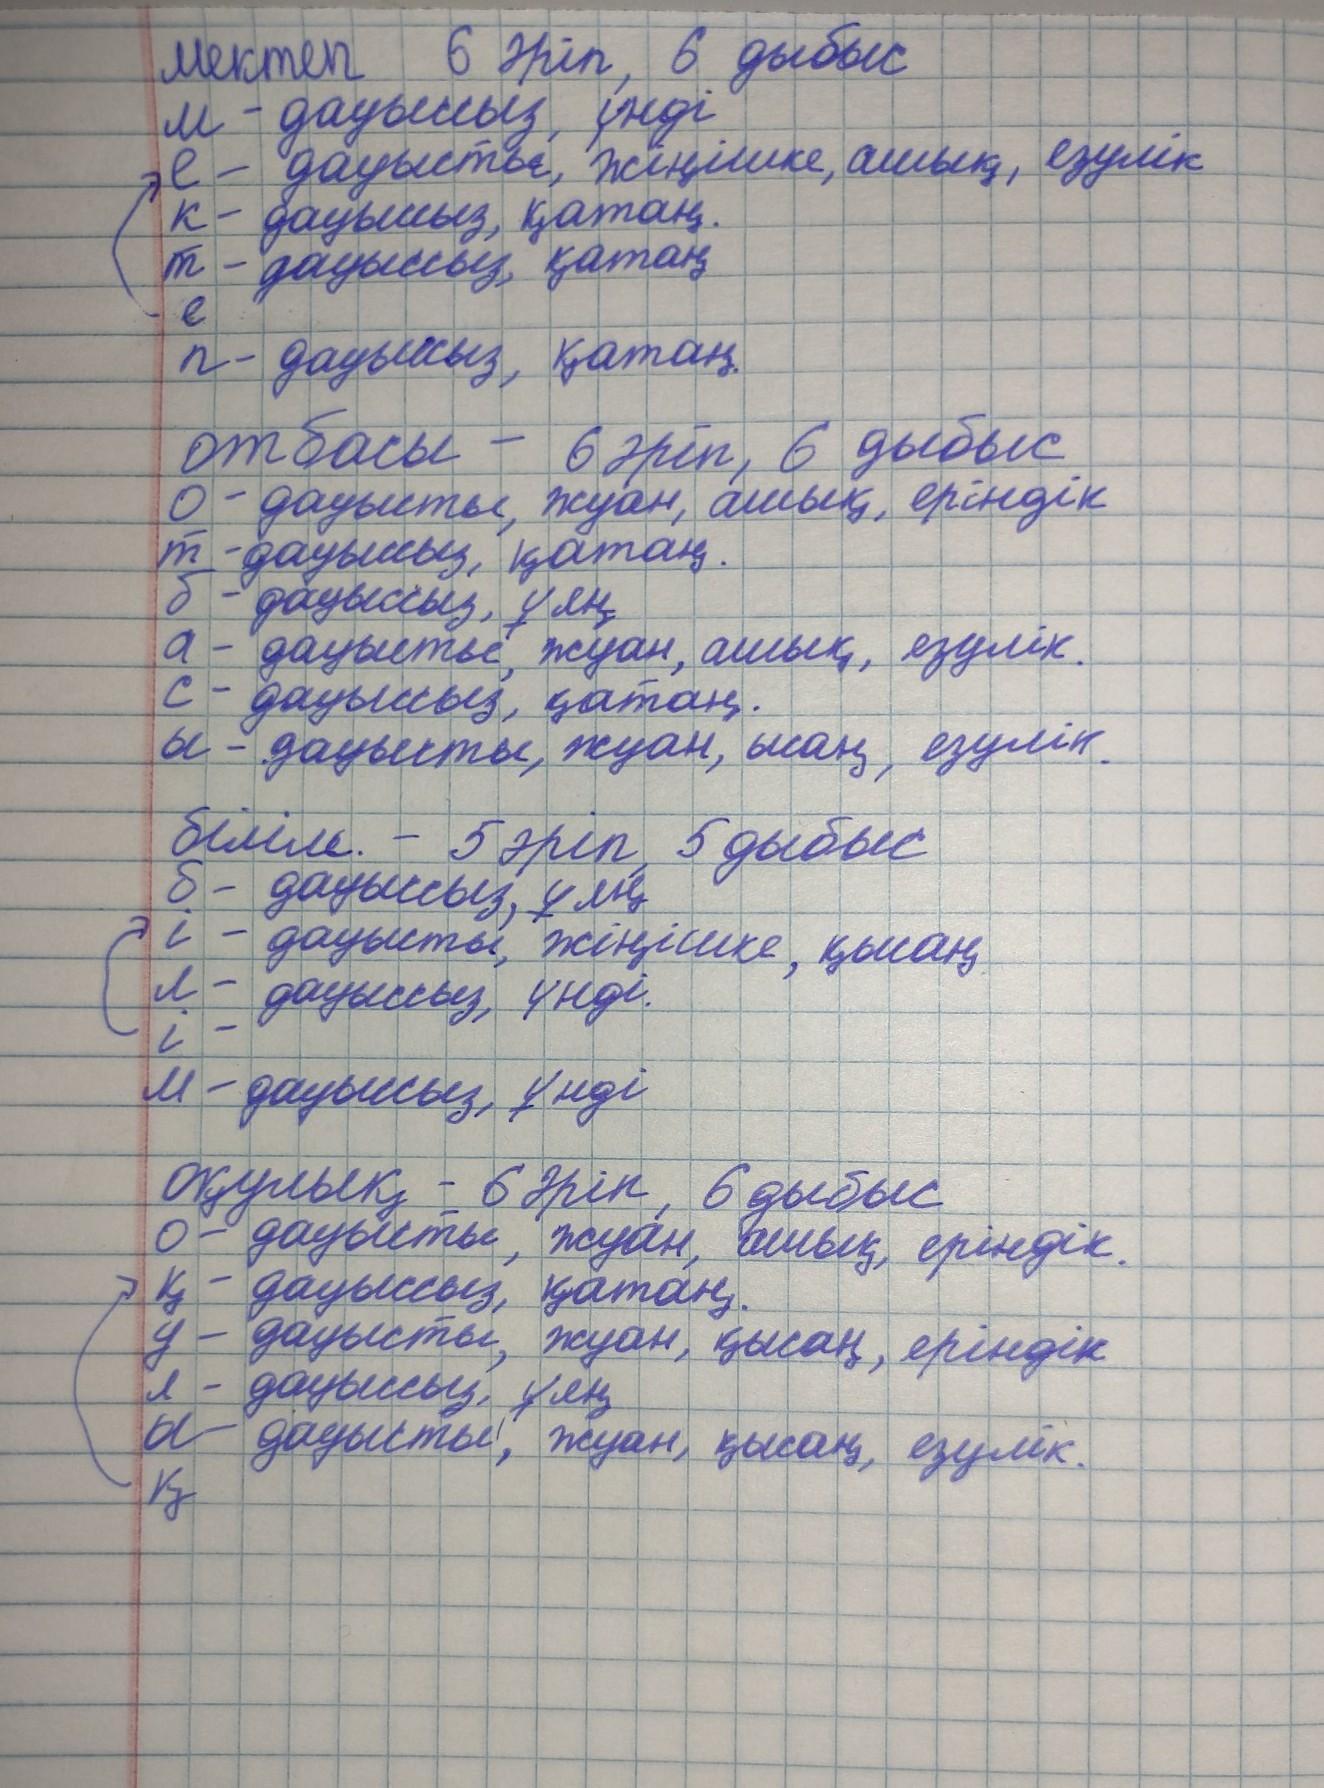 мектеп 6 әріп, 6 дыбыс
м - дауыссыз, үнді
е - дауысты, жіңішке, ашық, езулік
к - дауыссыз, қатаң.
т - дауыссыз, қатаң
е
п - дауыссыз, қатаң.
отбасы - 6 әріп, 6 дыбыс
о - дауысты, жуан, ашық, еріндік
т - дауыссыз, қатаң.
б - дауыссыз, ұяң
а - дауысты, жуан, ашық, езулік.
с - дауыссыз, қатаң.
ы - дауысты, жуан, ысаң, езулік.
білім. - 5 әріп, 5 дыбыс
б - дауыссыз, ұяң
і - дауысты, жіңішке, қысаң
л - дауыссыз, үнді.
і -
м - дауыссыз, ұнді
оқулық - 6 әріп, 6 дыбыс
о - дауысты, жуан, ашық, еріндік.
қ - дауыссыз, қатаң.
у - дауысты, жуан, қысаң, еріндік
л - дауыссыз, ұяң
ы - дауысты, жуан, қысаң, езулік.
қ